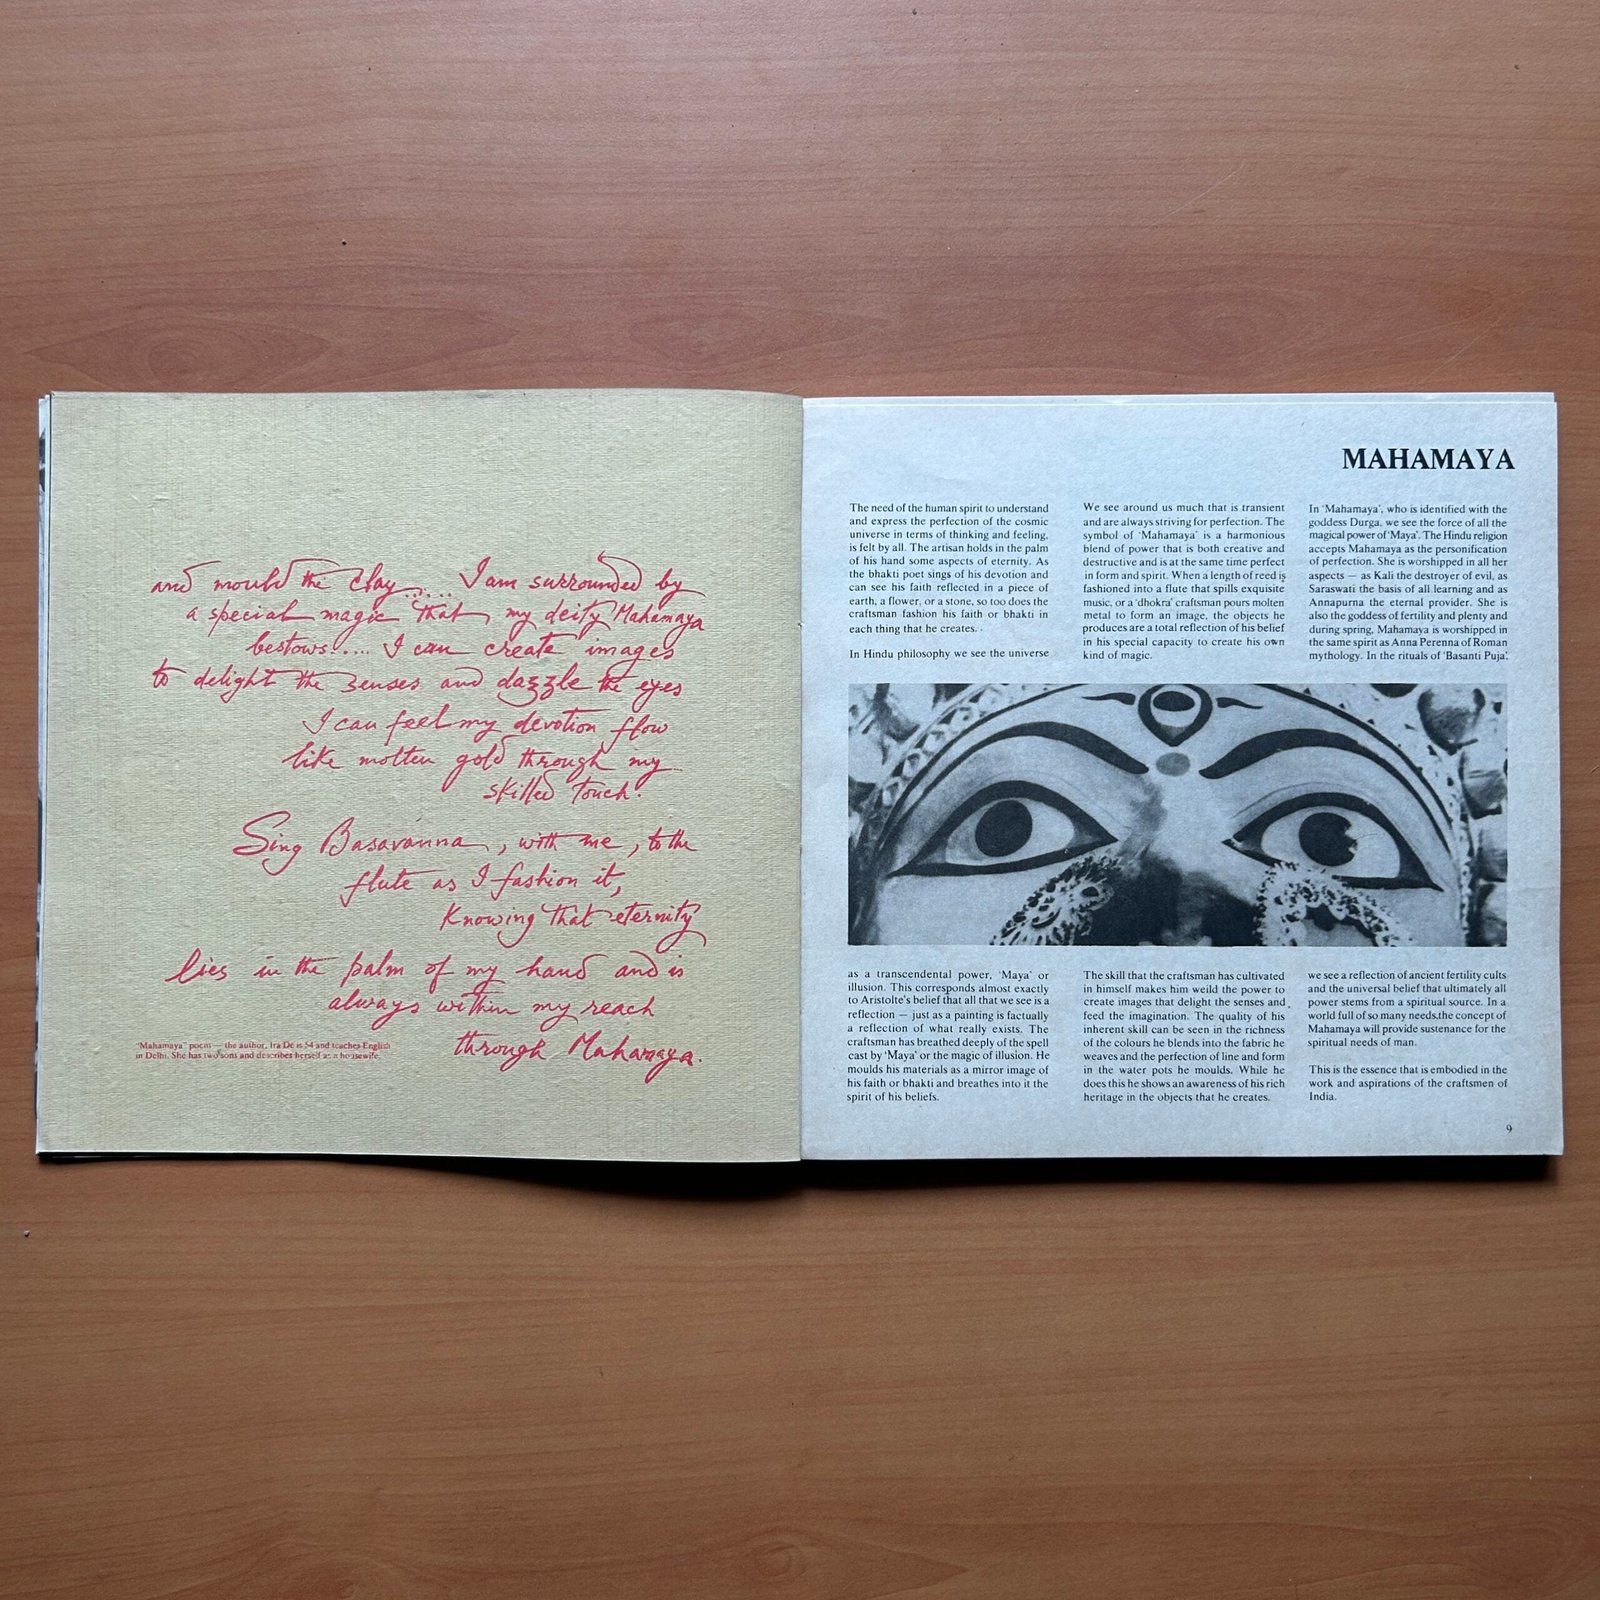 and mould the clay...... I am surrounded by
a special magic that my deity Mahamaya
bestows..... I can create images
to delight the senses and dazzle the eyes
I can feel my devotion flow
like molten gold through my
skilled touch.
Sing Basavanna, with me, to the
flute as I fashion it,
Knowing that eternity
lies in the palm of my hand and is
always within my reach
through Mahamaya.
"Mahamaya" poem — the author, Ira De is 54 and teaches English
in Delhi. She has two sons and describes herself as a housewife.
MAHAMAYA
The need of the human spirit to understand
and express the perfection of the cosmic
universe in terms of thinking and feeling,
is felt by all. The artisan holds in the palm
of his hand some aspects of eternity. As
the bhakti poet sings of his devotion and
can see his faith reflected in a piece of
earth, a flower, or a stone, so too does the
craftsman fashion his faith or bhakti in
each thing that he creates.
In Hindu philosophy we see the universe
as a transcendental power, 'Maya' or
illusion. This corresponds almost exactly
to Aristolte's belief that all that we see is a
reflection — just as a painting is factually
a reflection of what really exists. The
craftsman has breathed deeply of the spell
cast by 'Maya' or the magic of illusion. He
moulds his materials as a mirror image of
his faith or bhakti and breathes into it the
spirit of his beliefs.
We see around us much that is transient
and are always striving for perfection. The
symbol of 'Mahamaya' is a harmonious
blend of power that is both creative and
destructive and is at the same time perfect
in form and spirit. When a length of reed is
fashioned into a flute that spills exquisite
music, or a 'dhokra' craftsman pours molten
metal to form an image, the objects he
produces are a total reflection of his belief
in his special capacity to create his own
kind of magic.
The skill that the craftsman has cultivated
in himself makes him weild the power to
create images that delight the senses and
feed the imagination. The quality of his
inherent skill can be seen in the richness
of the colours he blends into the fabric he
weaves and the perfection of line and form
in the water pots he moulds. While he
does this he shows an awareness of his rich
heritage in the objects that he creates.
In 'Mahamaya', who is identified with the
goddess Durga, we see the force of all the
magical power of 'Maya'. The Hindu religion
accepts Mahamaya as the personification
of perfection. She is worshipped in all her
aspects — as Kali the destroyer of evil, as
Saraswati the basis of all learning and as
Annapurna the eternal provider. She is
also the goddess of fertility and plenty and
during spring, Mahamaya is worshipped in
the same spirit as Anna Perenna of Roman
mythology. In the rituals of 'Basanti Puja',
we see a reflection of ancient fertility cults
and the universal belief that ultimately all
power stems from a spiritual source. In a
world full of so many needs,the concept of
Mahamaya will provide sustenance for the
spiritual needs of man.
This is the essence that is embodied in the
work and aspirations of the craftsmen of
India.
9